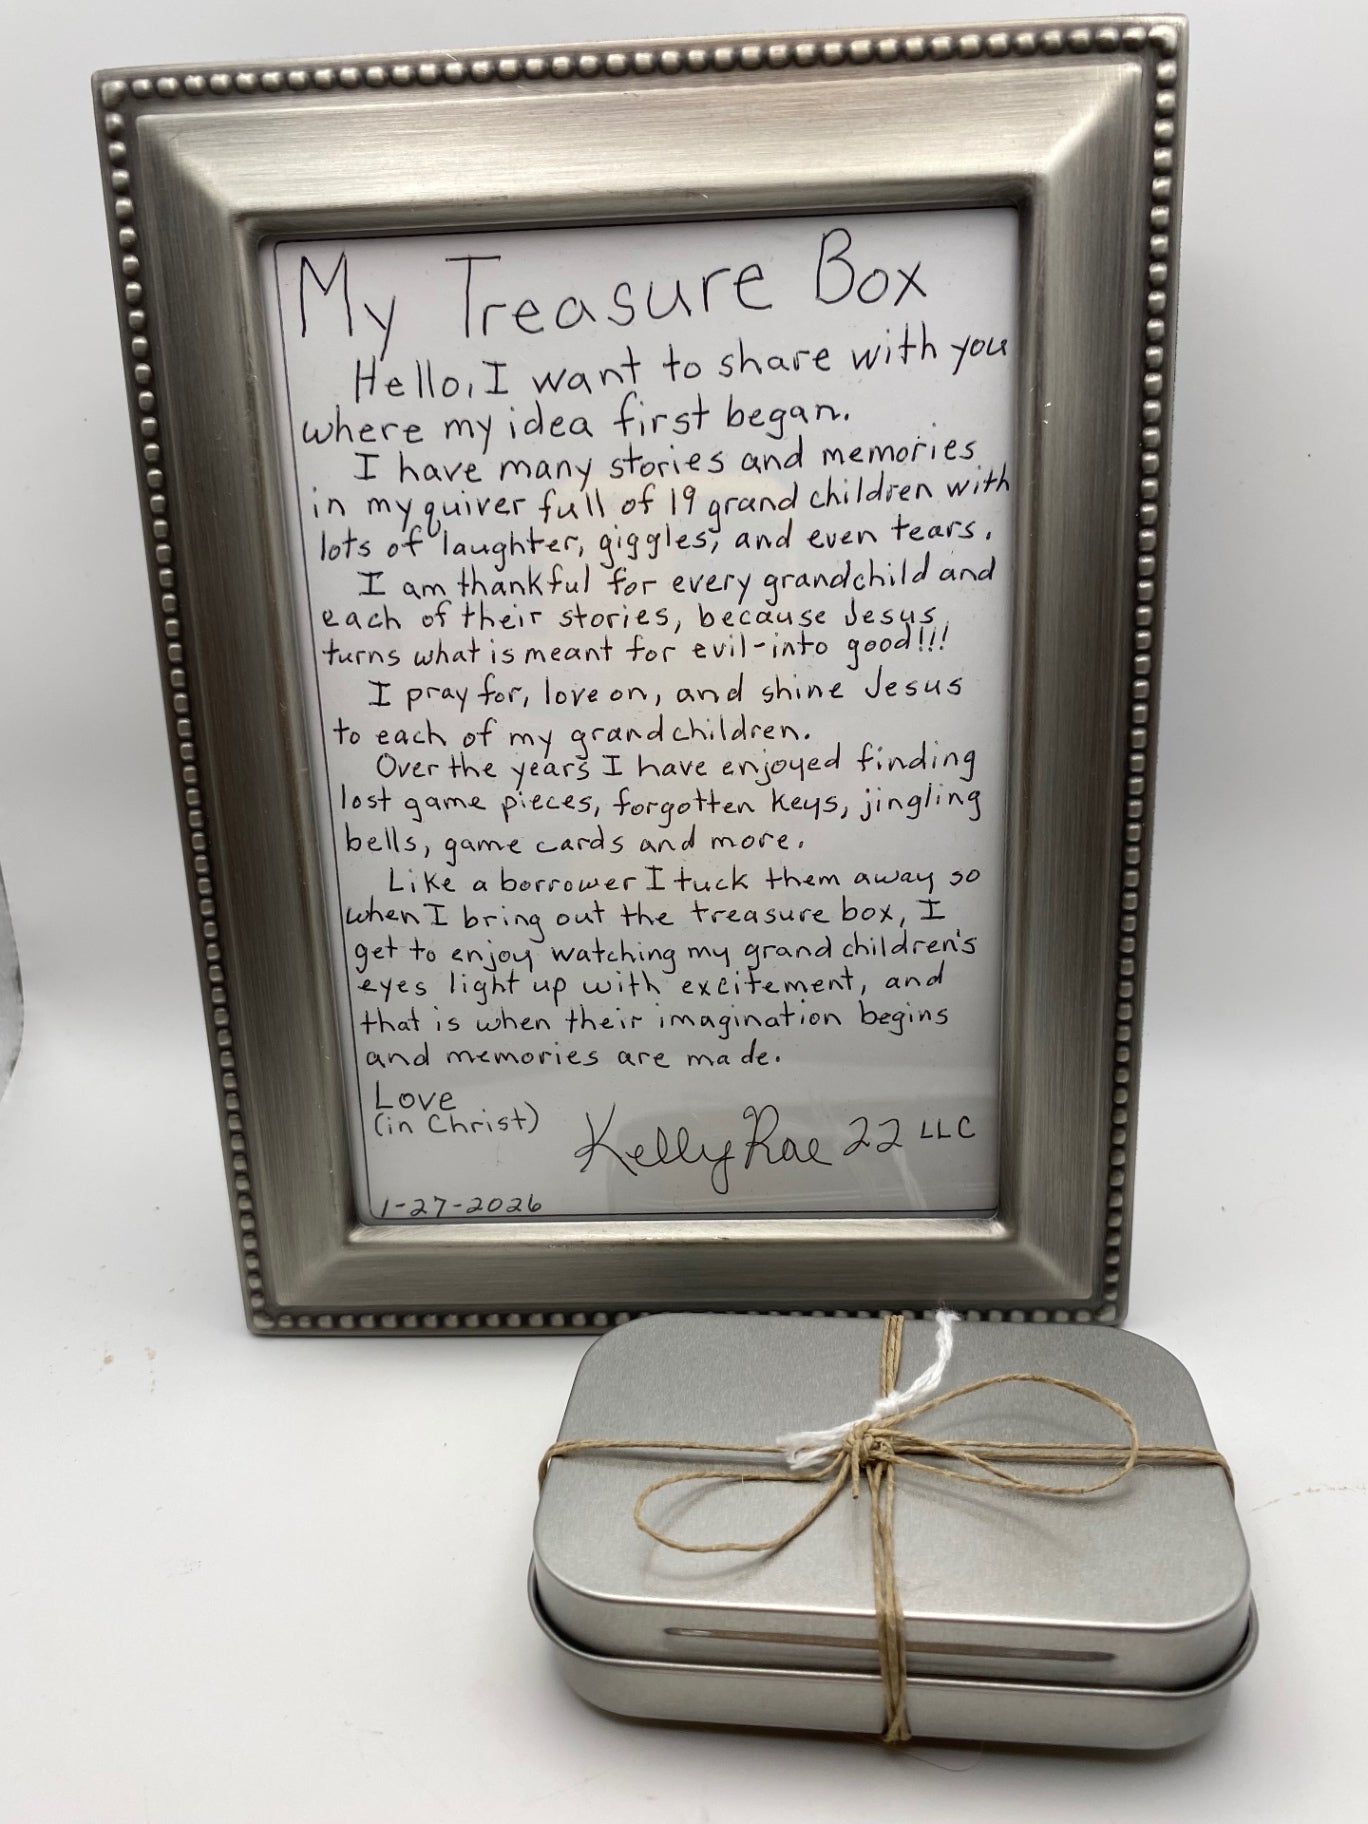 My Treasure Box
Hello, I want to share with you
where my idea first began.
I have many stories and memories
in my quiver full of 19 grandchildren with
lots of laughter, giggles, and even tears.
I am thankful for every grandchild and
each of their stories, because Jesus
turns what is meant for evil-into good!!!
I pray for, love on, and shine Jesus
to each of my grandchildren.
Over the years I have enjoyed finding
lost game pieces, forgotten keys, jingling
bells, game cards and more.
Like a borrower I tuck them away so
when I bring out the treasure box, I
get to enjoy watching my grandchildren's
eyes light up with excitement, and
that is when their imagination begins
and memories are made.
Love
(in Christ)
KellyRae 22 LLC
1-27-2026